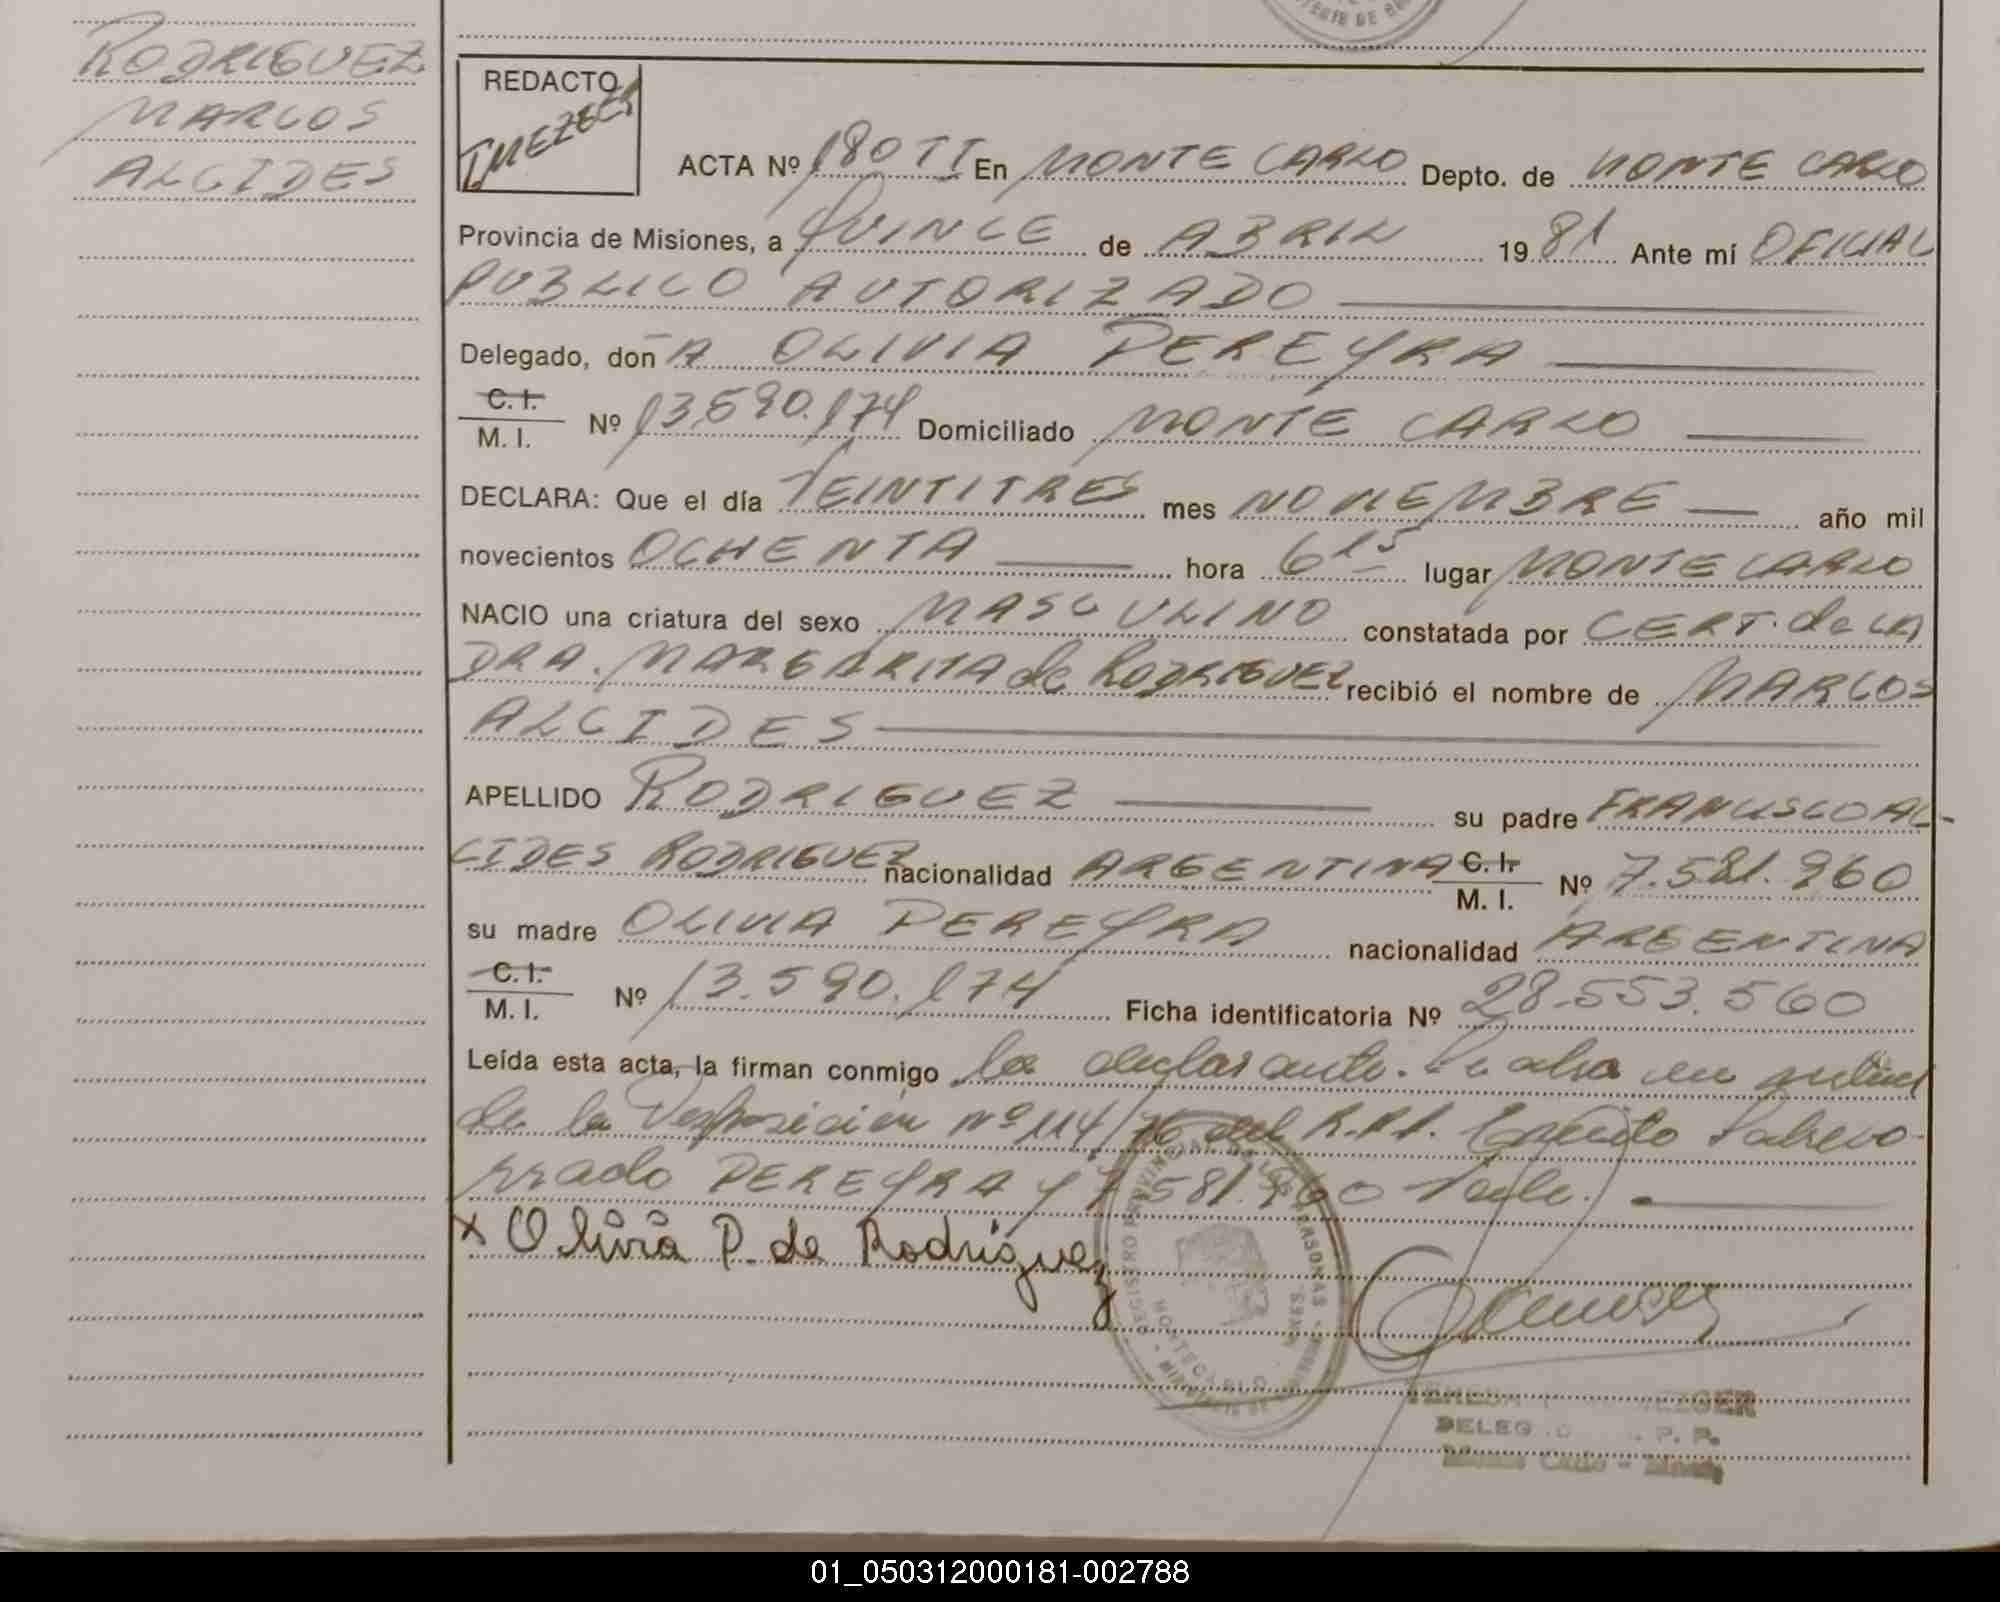 RODRIGUEZ
MARCOS
ALCIDES
REDACTO
ACTA Nº 180 TI En MONTE CARLO Depto. de MONTE CARLO
Provincia de Misiones, a QUINCE de ABRIL 1981 Ante mí OFICIAL
PUBLICO AUTORIZADO
Delegado, don A OLIVIA PEREYRA
C. I.
M. I. Nº 13.590.174 Domiciliado MONTE CARLO
DECLARA: Que el día VEINTITRES mes NOVIEMBRE año mil
novecientos OCHENTA hora 6 15 lugar MONTE CARLO
NACIO una criatura del sexo MASCULINO constatada por CERT. de LA
DRA. MARGARITA de RODRIGUEZ recibió el nombre de MARCOS
ALCIDES
APELLIDO RODRIGUEZ su padre FRANCISCO AL-
CIDES RODRIGUEZ nacionalidad ARGENTINA C. I. M. I. Nº 7.581.960
su madre OLIVIA PEREYRA nacionalidad ARGENTINA
C. I.
M. I. Nº 13.590.174 Ficha identificatoria Nº 28.553.560
Leída esta acta, la firman conmigo la declarante. Se labra en virtud
de la Disposición Nº 114/76 del R.P.P. Escrito Sobrebo-
rrado PEREYRA y 7.581.960 Vale.
x Olivia P. de Rodríguez
REGISTRO PROVINCIAL DE LAS PERSONAS
MONTECARLO
MNES.
DELEG
P. P.
01_050312000181-002788